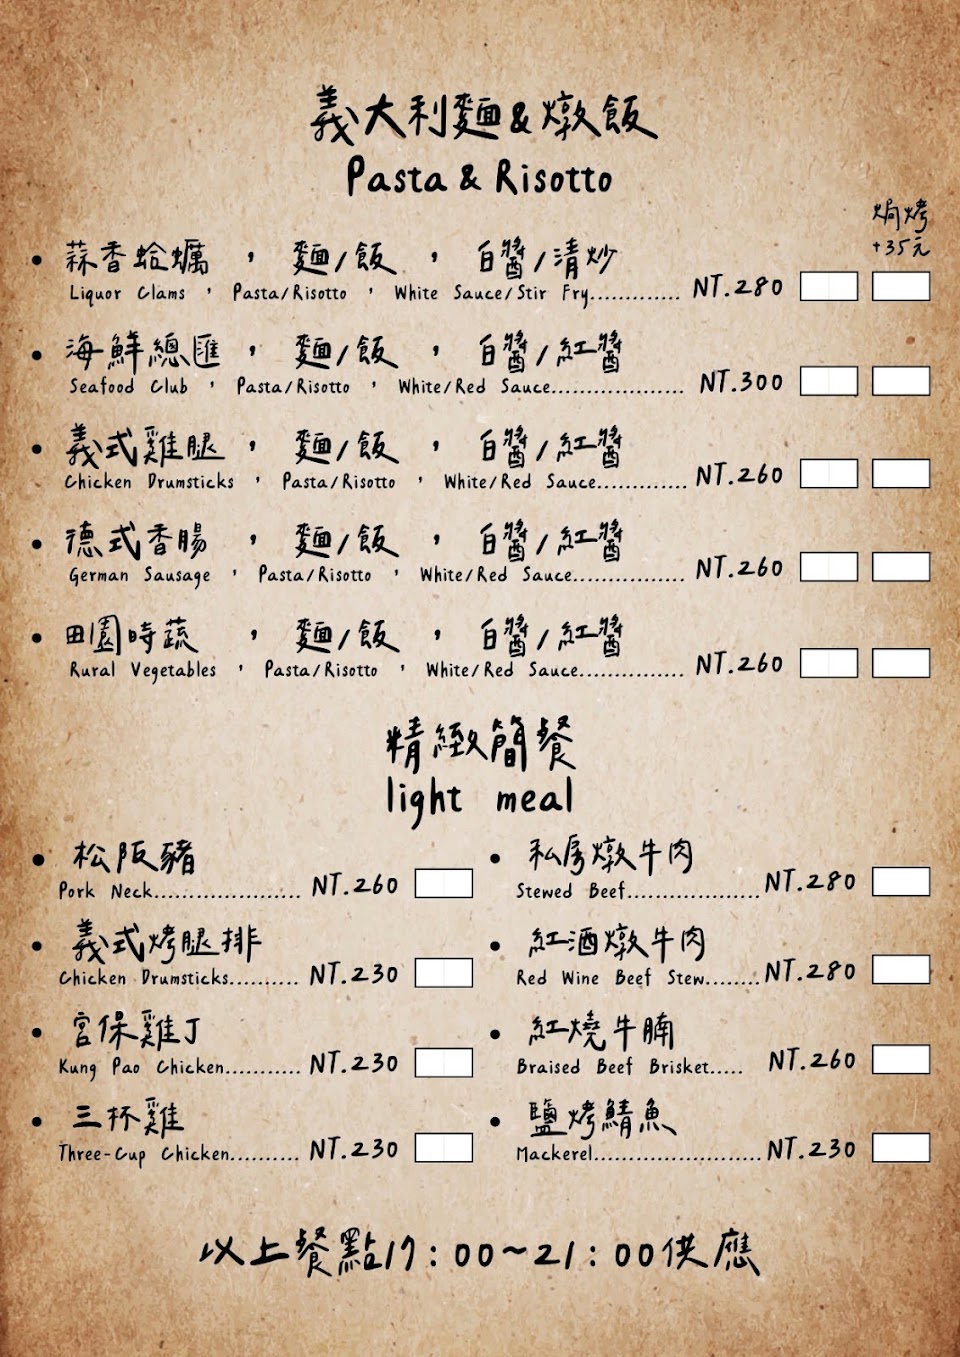 義大利麵&燉飯
Pasta & Risotto
焗烤
+35元
• 蒜香蛤蠣 , 麵/飯 , 白醬/清炒
Liquor Clams , Pasta/Risotto , White Sauce/Stir Fry............. NT.280
• 海鮮總匯 , 麵/飯 , 白醬/紅醬
Seafood Club , Pasta/Risotto , White/Red Sauce................... NT.300
• 義式雞腿 , 麵/飯 , 白醬/紅醬
Chicken Drumsticks , Pasta/Risotto , White/Red Sauce............. NT.260
• 德式香腸 , 麵/飯 , 白醬/紅醬
German Sausage , Pasta/Risotto , White/Red Sauce................ NT.260
• 田園時蔬 , 麵/飯 , 白醬/紅醬
Rural Vegetables , Pasta/Risotto , White/Red Sauce............... NT.260
精緻簡餐
light meal
• 松阪豬
Pork Neck..................... NT.260
• 義式烤腿排
Chicken Drumsticks.......... NT.230
• 宮保雞丁
Kung Pao Chicken........... NT.230
• 三杯雞
Three-Cup Chicken.......... NT.230
• 私房燉牛肉
Stewed Beef................... NT.280
• 紅酒燉牛肉
Red Wine Beef Stew........ NT.280
• 紅燒牛腩
Braised Beef Brisket..... NT.260
• 鹽烤鯖魚
Mackerel........................ NT.230
以上餐點17:00~21:00供應